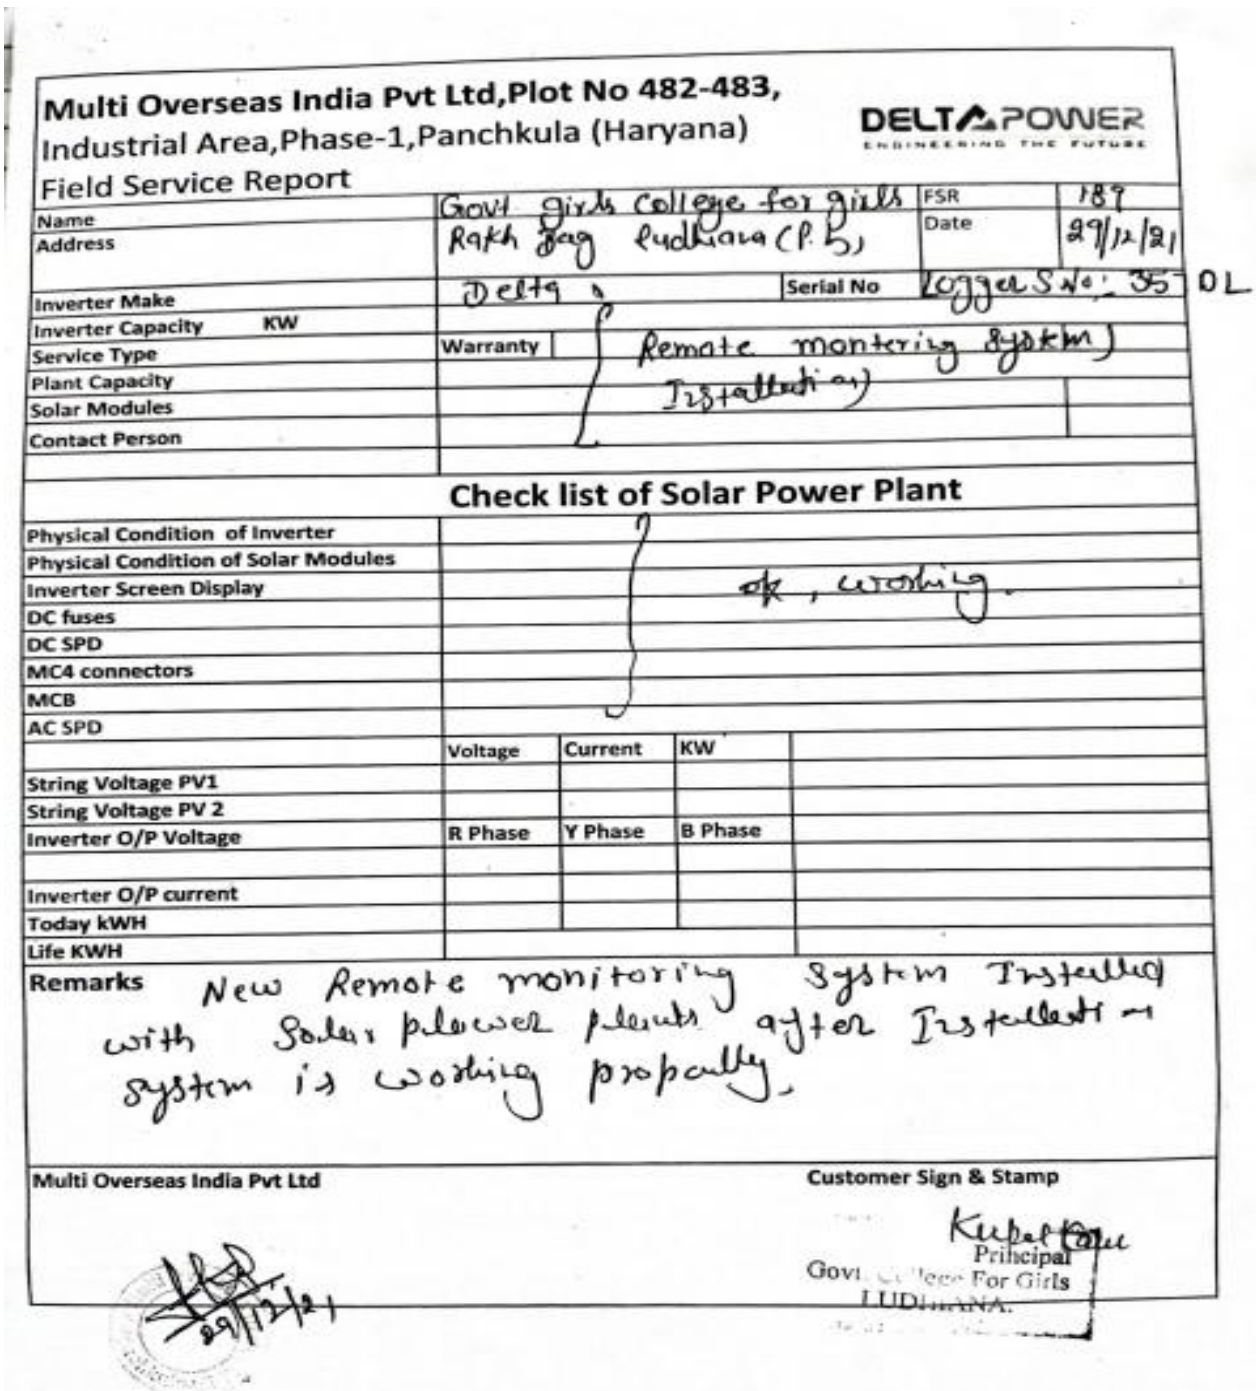 Multi Overseas India Pvt Ltd,Plot No 482-483,
Industrial Area,Phase-1,Panchkula (Haryana)
DELTA POWER
ENGINEERING THE FUTURE
Field Service Report
Name Govt girls College for girls FSR 189
Address Rakh Bag Ludhiana (P.b) Date 29/12/21
Inverter Make Delta Serial No Logger S No:- 357 DL
Inverter Capacity KW
Service Type Warranty Remote montering system
Plant Capacity Installation
Solar Modules
Contact Person
Check list of Solar Power Plant
Physical Condition of Inverter
Physical Condition of Solar Modules
Inverter Screen Display ok, working.
DC fuses
DC SPD
MC4 connectors
MCB
AC SPD
Voltage Current KW
String Voltage PV1
String Voltage PV 2
Inverter O/P Voltage R Phase Y Phase B Phase
Inverter O/P current
Today kWH
Life KWH
Remarks New Remote monitoring system Installed
with Solar plower plants after Installation
system is working propaully.
Multi Overseas India Pvt Ltd Customer Sign & Stamp
Principal
Govt. College For Girls
LUDHIANA.
29/12/21